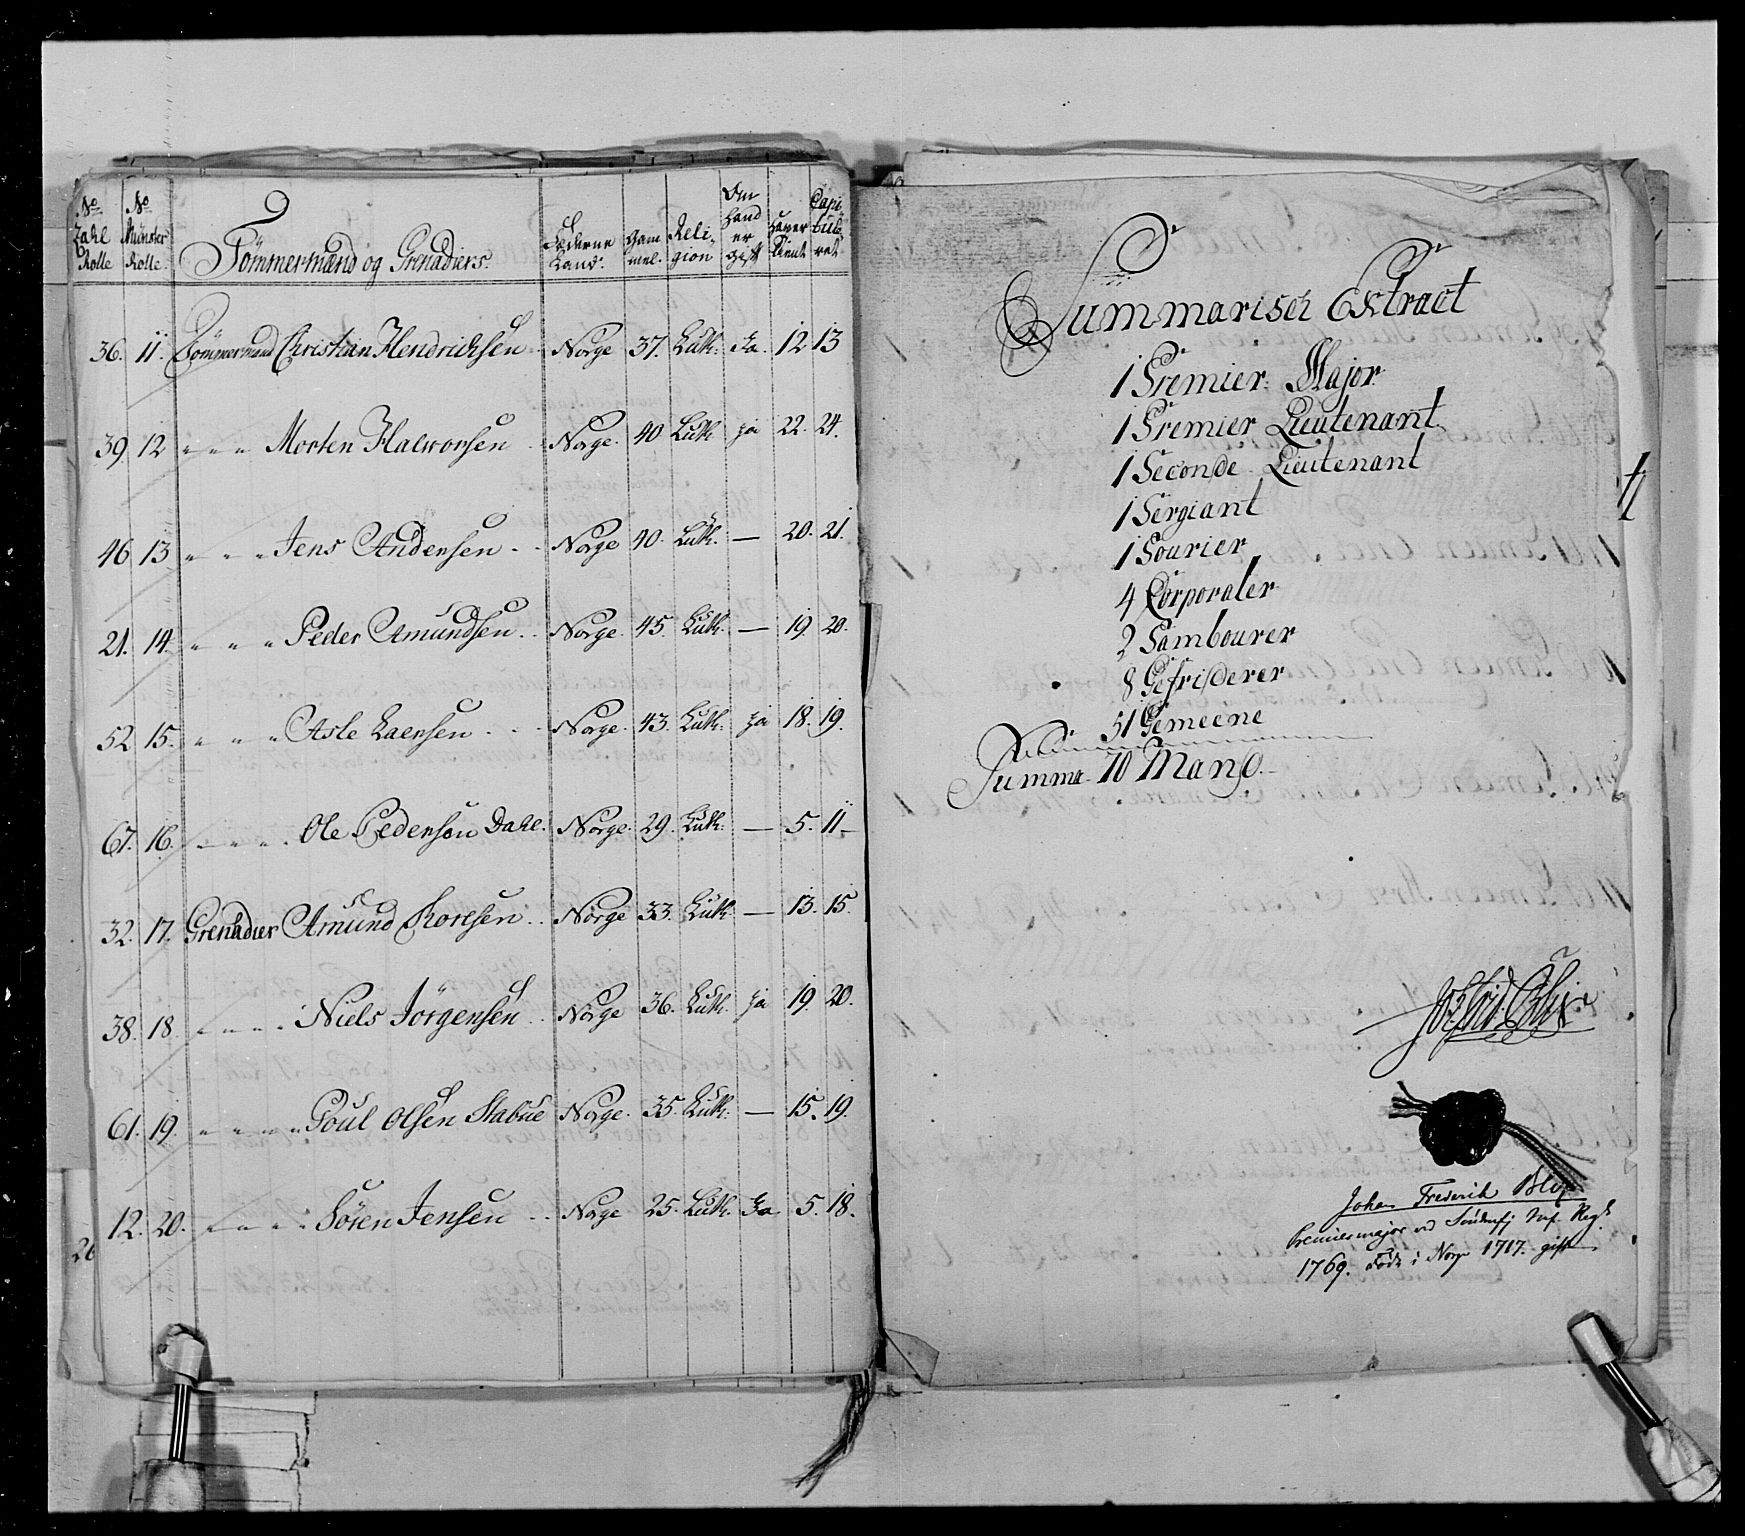 No Zahl Rolle | No Mönster Rolle | Tömmermænd og Grenadiers. | Føderne Land. | Gammel. | Religion | Om hand er gift | Haver tient | Capituleret
36. 11. Tömmermand Christian Hendrichsen Norge 37. Luth. Ja. 12 13
39. 12 " " " Morten Halvorsen Norge. 40 Luth. ja 22. 24.
46 13 " " " Jens Andersen Norge 40. Luth. — 20. 21.
21. 14. " " " Peder Amundsen Norge. 45. Luth. — 19. 20.
52 15. " " " Asle Laersen Norge. 43. Luth. ja 18. 19.
67. 16. " " " Ole Pedersen Dahl. Norge. 29. Luth. — 5. 11
32. 17. Grenadier Amund Thoresen Norge 33. Luth. — 13. 15.
38. 18. " " " " Niels Jörgensen Norge 36. Luth. ja 19. 20.
61. 19. " " " " Poul Olsen Stabue Norge. 35. Luth. — 15. 19.
12. 20. " " " " Sören Jensen Norge 25. Luth. Ja. 5. 18.
26
Summarisch Extract
1 Premier Major
1 Premier Lieutenant
1 Seconde Lieutenant
1 Sergiant
1 Fourier
4 Corporaler
2 Tambourer
8 Gefriderer
51 Gemeene
Summa 70 Mand.
Johan Frederik Blix
Premiermajor ved Söndenfj Inf. Regt
1769. Født i Norge 1717. gift